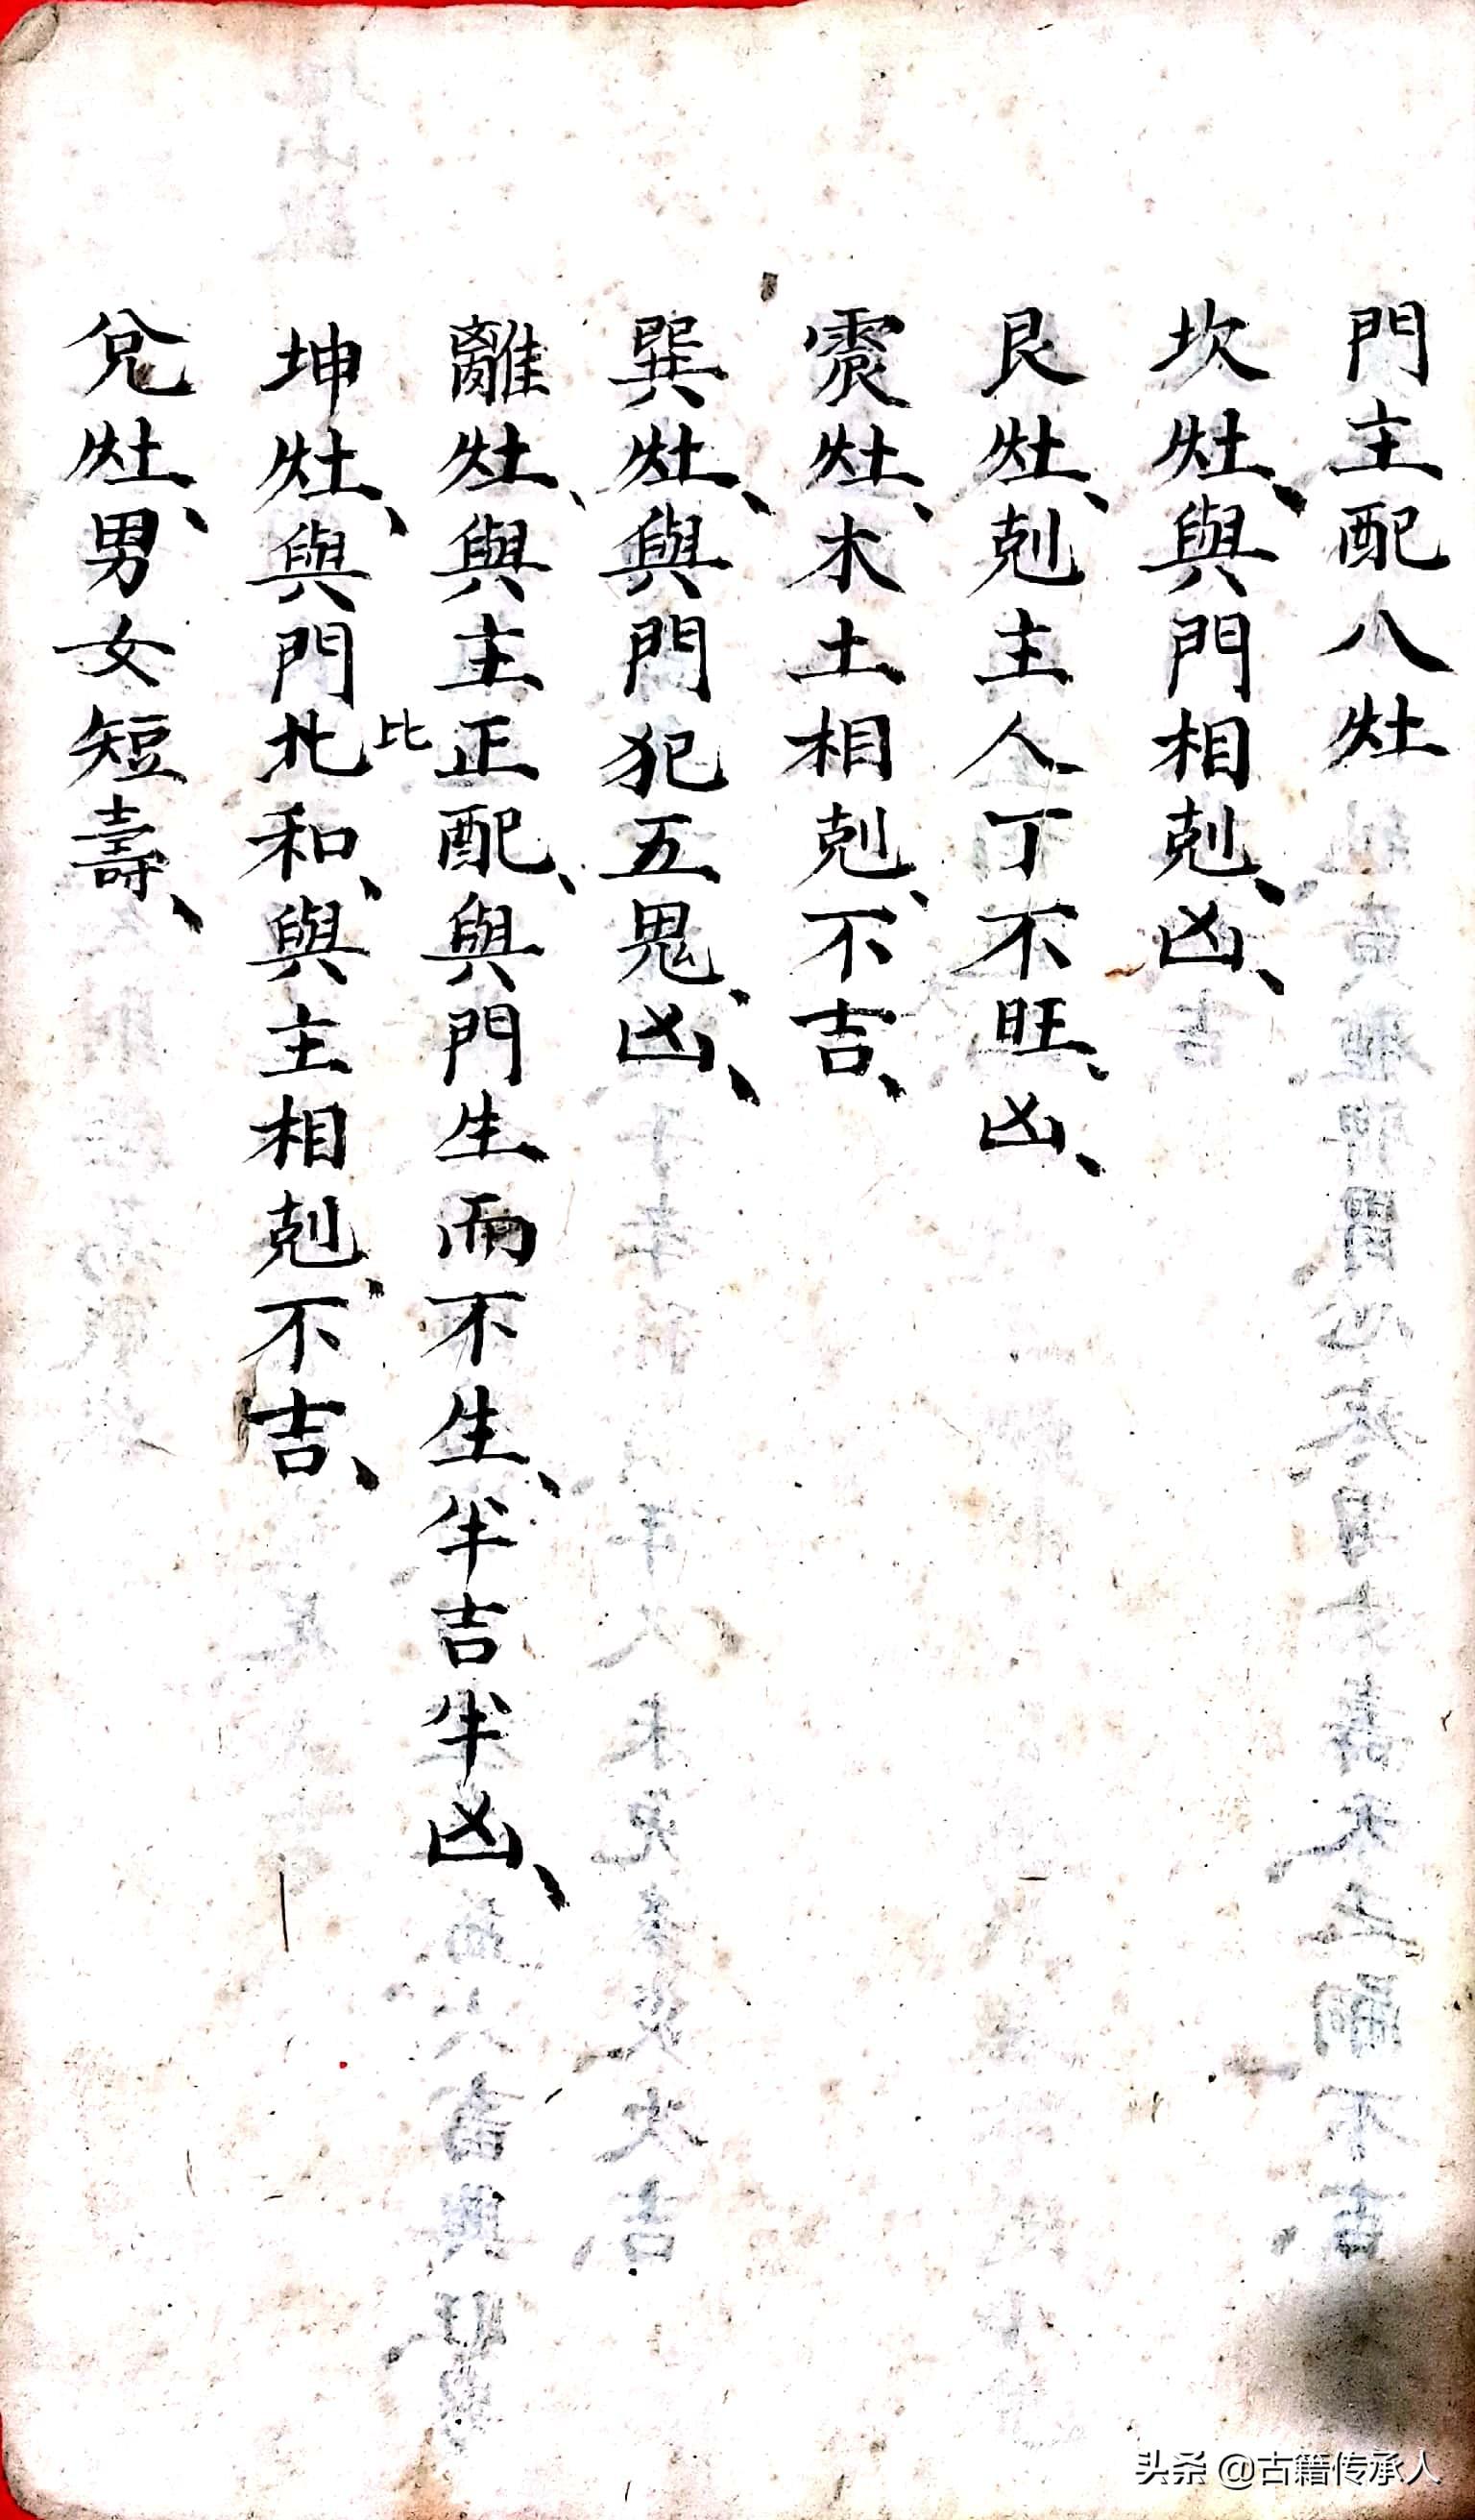 門主配八灶
坎灶、與門相剋、凶、
艮灶、剋主人丁不旺、凶、
震灶、木土相剋、不吉、
巽灶、與門犯五鬼、凶、
離灶、與主正配、與門生而不生、半吉半凶、
比
坤灶、與門北和、與主相剋、不吉、
兌灶、男女短壽、
头条 @古籍传承人